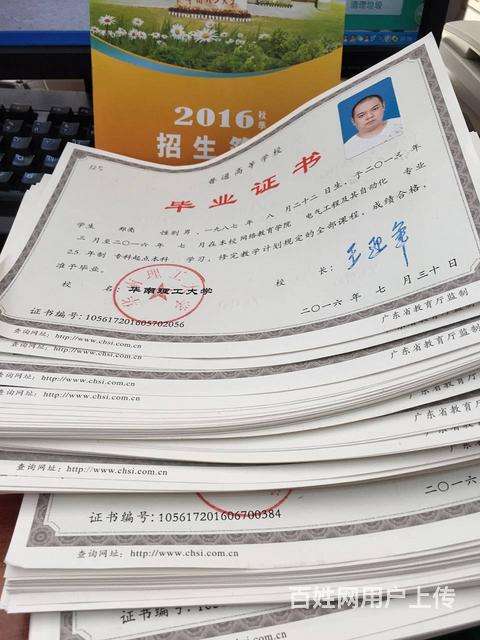 清理垃圾
2016 秋季
招生
普通高等学校
毕业证书
学生 郑亮 性别男，一九八七年 八 月二十二日生，于二〇一三年
三 月至二〇一六年 七 月在本校 网络教育学院 电气工程及其自动化 专业
2.5 年制 专科起点本科 学习，修完教学计划规定的全部课程，成绩合格，
准予毕业。
校 名： 华南理工大学
校 长：
二〇一六年 七 月三十日
证书编号：105617201605702056
广东省教育厅监制
查询网址：http://www.chsi.com.cn
广东省教育厅监制
查询网址：http://www.chsi.com.cn
广东省教育厅监制
查询网址：http://www.chsi.com.cn
查询网址：http://www.chsi.com.cn
广东省教育厅监制
查询网址：http://www.chsi.com.cn
二〇一六
证书编号：105617201606700384
查询网址：http://www.chsi.com.cn
证书编号：
百姓网用户上传